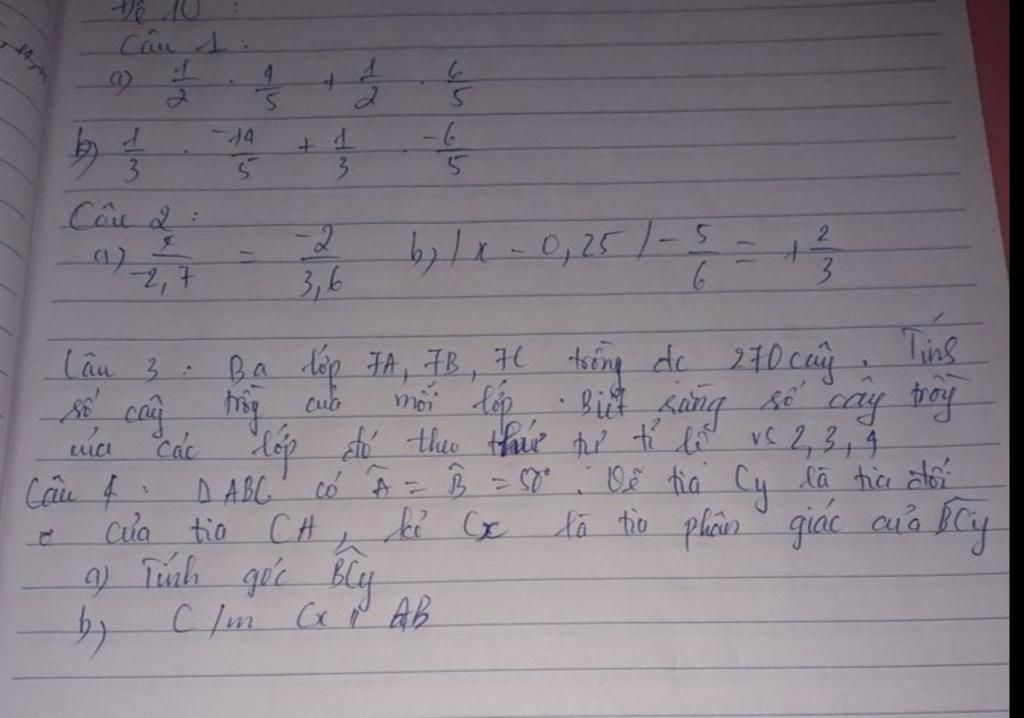 Đề 10 :
Câu 1 :
a) 1/2 . 4/5 + 1/2 . 6/5
b) 1/3 . -14/5 + 1/3 . -6/5
Câu 2 :
a) x/-2,7 = -2/3,6 b) |x - 0,25| - 5/6 = + 2/3
Câu 3 : Ba lớp 7A, 7B, 7C trồng đc 270 cây . Tính
số cây trồng của mỗi lớp . Biết rằng số cây trồng
của các lớp đó theo thứ tự tỉ lệ vs 2, 3, 4
Câu 4 : ΔABC có Â = B̂ = 50° . Vẽ tia Cy là tia đối
của tia CA, kẻ Cx là tia phân giác của BĈy
a) Tính góc BĈy
b) C/m Cx // AB